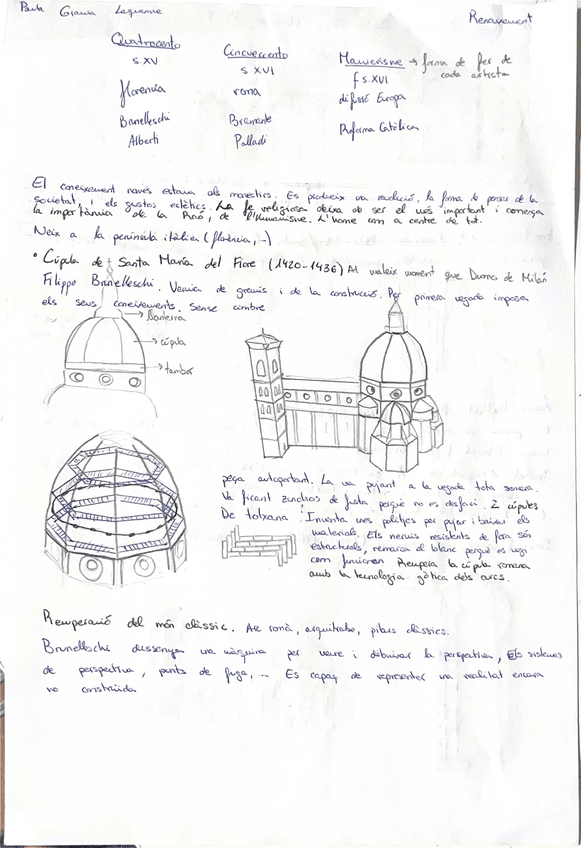 Paula
Renaixement
Quatrocento
Cincueccento
Manierisme → forma de fer de
cada artista
s. XV
s XVI
f s. XVI
florencia
roma
difusió Europa
Brunelleschi
Bramante
Reforma Catòlica
Alberti
Palladi
El coneixement només estava als monestirs. Es produeix una revolució, la forma de pensar de la
societat, i els gustos eclèctics. La fe religiosa deixa de ser el més important i comença
la importància de la Raó, de l'Humanisme. L'home com a centre de tot.
Neix a la península itàlica (florència, ...)
• Cúpula de Santa María del Fiore (1420-1436) Al mateix moment que Duomo de Milán
Filippo Brunelleschi. Venia de gremis i de la construcció. Per primera vegada imposa
els seus coneixements. Sense cimbre
→ llanterna
→ cúpula
→ tambor
peça autoportant. La va pujant a la vegada tota sencera.
Va ficant zunchos de fusta perquè no es desfaci. 2 cúpules
De totxana. Inventa unes politjes per pujar i baixar els
materials. Els nervis resistents de fora són
estructurals, remarca el blanc perquè es vegi
com funcionen Recupera la cúpula romana
amb la tecnologia gòtica dels arcs.
Recuperació del món clàssic. Arc romà, arquitrabe, pilars clàssics.
Brunelleschi dissenya una màquina per veure i dibuixar la perspectiva, Els sistemes
de perspectiva, punts de fuga, ... Es capaç de representar una realitat encara
no construïda